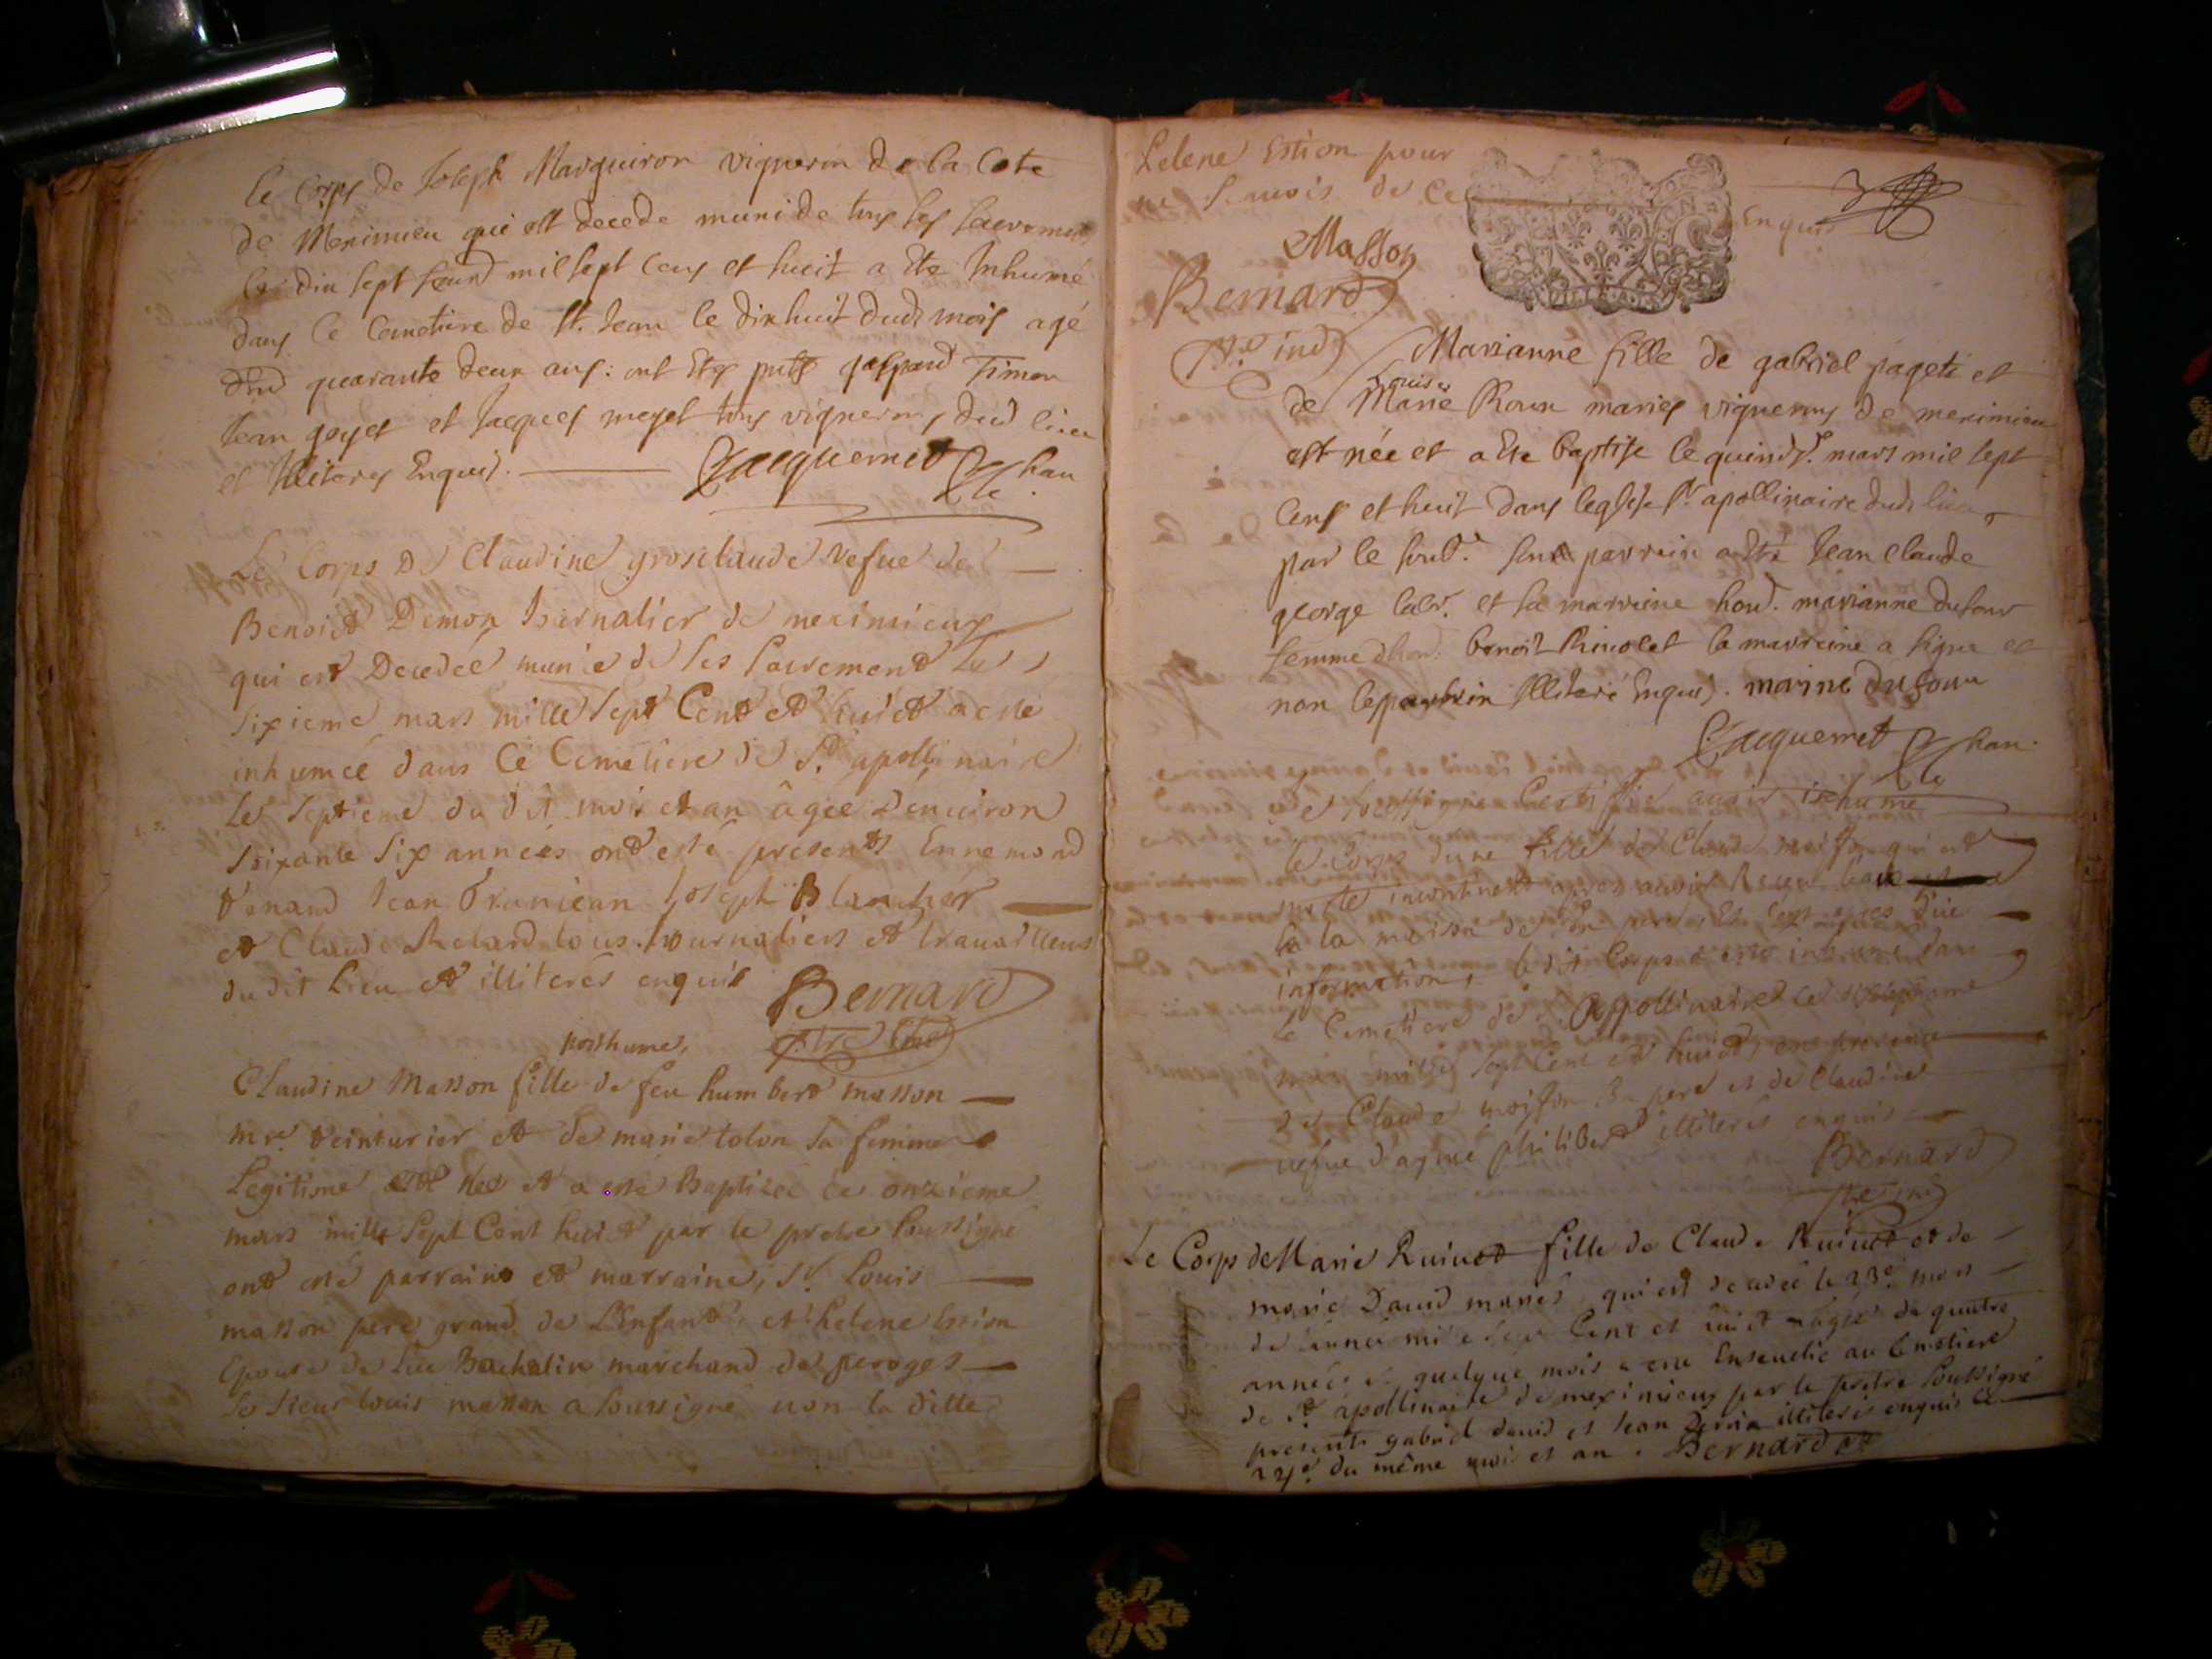 le Corps de Joseph Marguiron vigneron de la Cote
de Meximieu qui est decede muni de tous les sacremens
le dix sept feurd mil sept Cens et huit a ete Inhumé
dans le Cemetiere de St. Jean le dixhuit dud. mois agé
d'end quarante deux ans: ont Etes pntz gaspard Timon
Jean goyet et Jacques meyet tous vignerons dud lieu
et Illiteres Enquis. Jacquemet chan
Le Corps De Claudine grosclaude vefue de
Benoist Demon Journalier de meximieux
qui est Decedée munie de ses sacrement le
sixieme mars mille sept Cent et huict a esté
inhumée dans le Cimetiere de St. apollinaire
le septieme du dit mois et an âgée d'enuiron
soixante six années ont esté presents Ennemond
venand Jean Joseph Blanchet
et Claude Relard tous Journaliers et trauailleurs
du dit Lieu et illiterés enquis Bernard
posthume,
Claudine Masson fille de feu humbert masson
mre. teinturier et de marie tolon sa femme
Legitime est née et a esté Baptisée le onzieme
mars mille Sept Cent huict par le pretre soussigné
ont esté parrains et marraine, sr. Louis
masson pere grand de L'enfant, et helene Estion
Epouse de Luc Bachelin marchand de peroges
le sieur louis masson a soussigné non la ditte
helene Estion pour
ne sçauoir de ce Enquis
Masson
Bernard
ptre ind
Marianne fille de gabriel pageti et
Louise
de Marie Roux maries vignerons de meximieu
est née et a Ete baptise le quinze. mars mil sept
Cens et huit dans leglise st. apollinaire dud. lieu
par le soud. son parrein a Eté Jean Claude
george labr. et sa marreine hon. marianne dufour
femme d'hon. benoit Rinolet la marreine a signe et
non le parrein Illiteré Enquis. marine dufour
Jacquemet chan.
Je soussigné Certifie auoir inhumé
le Corps d'une fille de Claude moisson qui est
morte incontinent apres auoir Receu
la maison de son pere
information, le dit Corps a esté inhumé dans
le Cimetiere de St. Appollinaire le
mille sept Cent et huict, en presence
de Claude moisson son pere et de Claudine
vefue d'aymé philibert illiterés enquis
Bernard
ptre ind
Le Corps de Marie Ruinet fille de Claude Ruinet et de
marie Dauid mariés, qui est decedée le 23e. mars
de l'année mille sept Cent et huict âgée de quatre
années et quelque mois a esté Enseuelie au Cimetiere
de St. apollinaire de meximieux par le pretre soussigné
presents gabriel dauid et Jean Perrin illiterés enquis le
24e. du même mois et an. Bernard